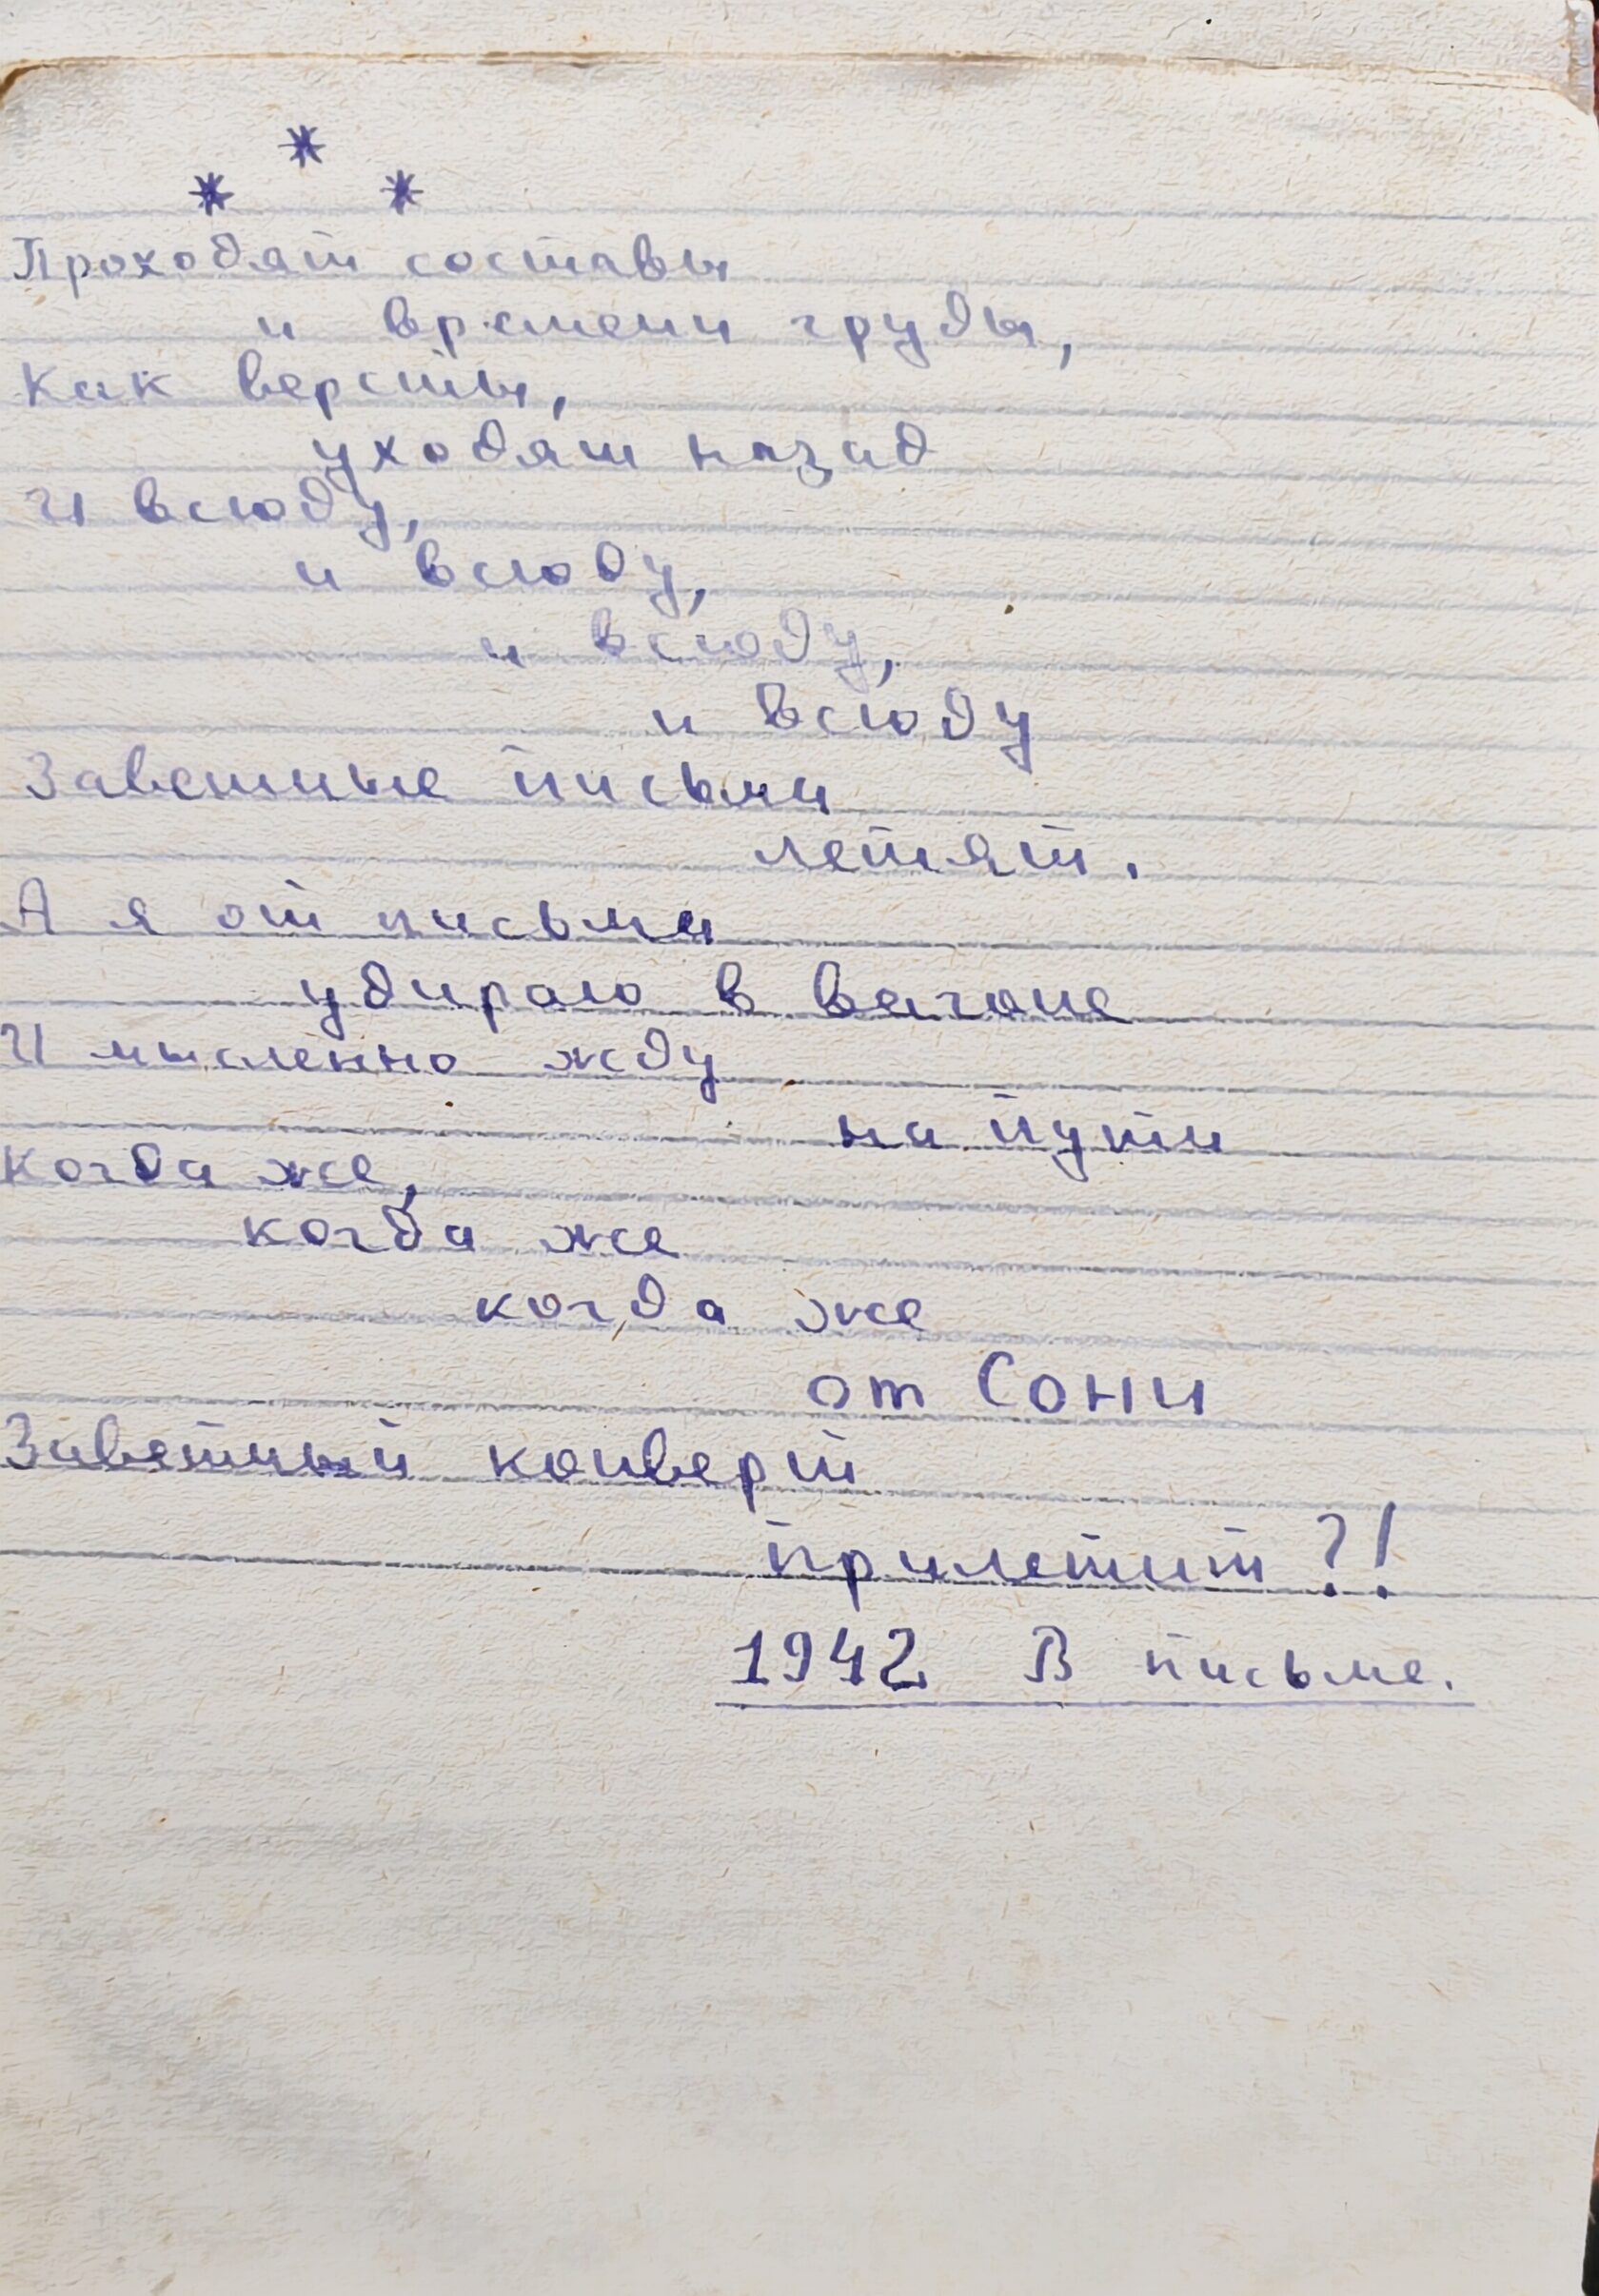 *
* *
Проходят составы
и времени груды,
Как версты,
уходят назад
И всюду,
и всюду,
и всюду,
и всюду
Заветные письма
летят.
А я от письма
удираю в вагоне
И мысленно жду
на пути
Когда же,
когда же
когда же
от Сони
Заветный конверт
прилетит?!
1942 В письме.